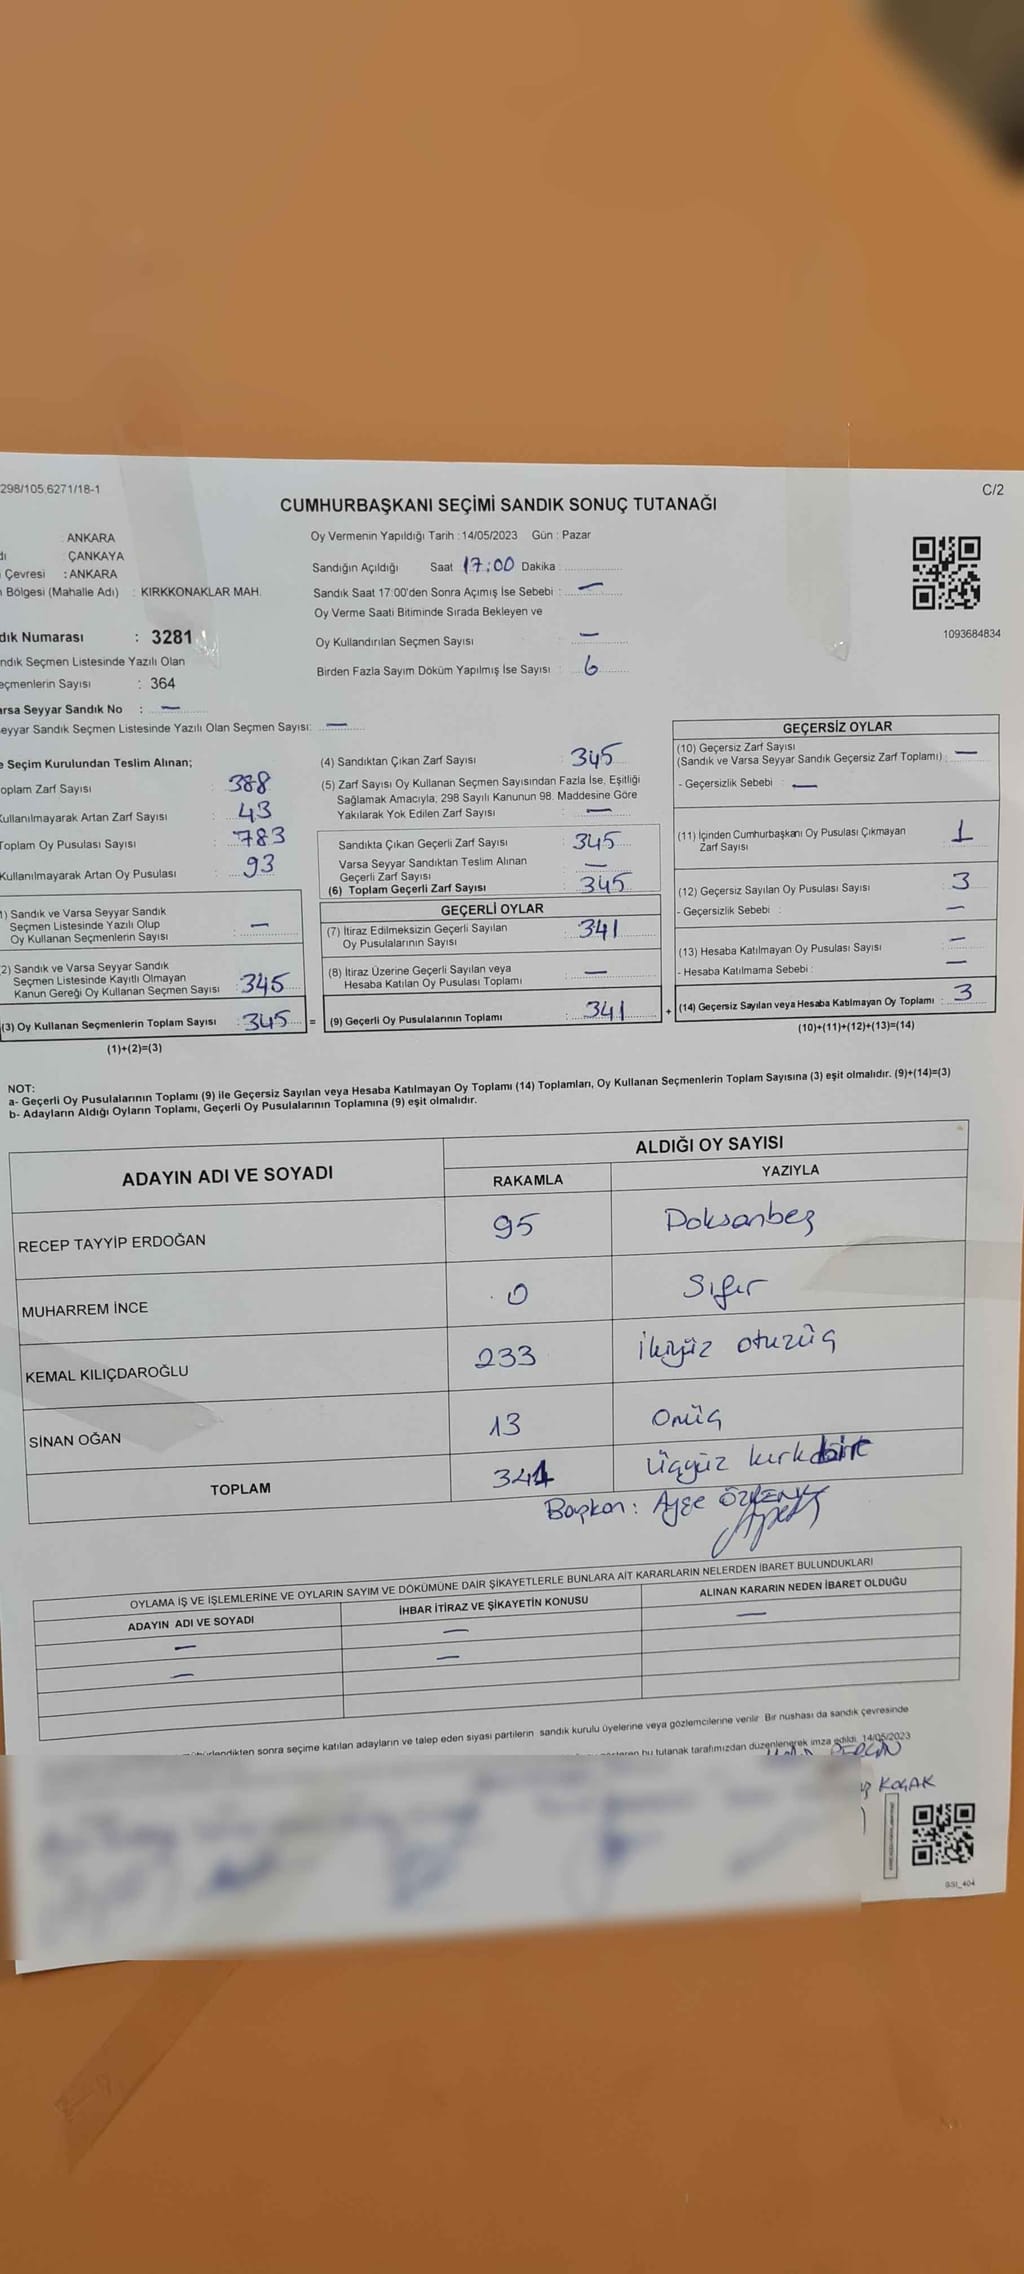 298/105,6271/18-1
C/2
CUMHURBAŞKANI SEÇİMİ SANDIK SONUÇ TUTANAĞI
: ANKARA
: ÇANKAYA
Çevresi : ANKARA
Bölgesi (Mahalle Adı) : KIRKKONAKLAR MAH.
dık Numarası : 3281
ndık Seçmen Listesinde Yazılı Olan
eçmenlerin Sayısı : 364
arsa Seyyar Sandık No : —
eyyar Sandık Seçmen Listesinde Yazılı Olan Seçmen Sayısı: —
Oy Vermenin Yapıldığı Tarih : 14/05/2023 Gün : Pazar
Sandığın Açıldığı Saat 17:00 Dakika
Sandık Saat 17:00'den Sonra Açımış İse Sebebi : —
Oy Verme Saati Bitiminde Sırada Bekleyen ve
Oy Kullandırılan Seçmen Sayısı —
Birden Fazla Sayım Döküm Yapılmış İse Sayısı : 6
1093684834
e Seçim Kurulundan Teslim Alınan;
oplam Zarf Sayısı : 388
Kullanılmayarak Artan Zarf Sayısı : 43
Toplam Oy Pusulası Sayısı : 783
Kullanılmayarak Artan Oy Pusulası : 93
1) Sandık ve Varsa Seyyar Sandık
Seçmen Listesinde Yazılı Olup
Oy Kullanan Seçmenlerin Sayısı : —
2) Sandık ve Varsa Seyyar Sandık
Seçmen Listesinde Kayıtlı Olmayan
Kanun Gereği Oy Kullanan Seçmen Sayısı : 345
(3) Oy Kullanan Seçmenlerin Toplam Sayısı : 345 =
(1)+(2)=(3)
(4) Sandıktan Çıkan Zarf Sayısı : 345
(5) Zarf Sayısı Oy Kullanan Seçmen Sayısından Fazla İse, Eşitliği
Sağlamak Amacıyla, 298 Sayılı Kanunun 98. Maddesine Göre
Yakılarak Yok Edilen Zarf Sayısı : —
Sandıkta Çıkan Geçerli Zarf Sayısı : 345
Varsa Seyyar Sandıktan Teslim Alınan
Geçerli Zarf Sayısı : —
(6) Toplam Geçerli Zarf Sayısı : 345
GEÇERLİ OYLAR
(7) İtiraz Edilmeksizin Geçerli Sayılan
Oy Pusulalarının Sayısı : 341
(8) İtiraz Üzerine Geçerli Sayılan veya
Hesaba Katılan Oy Pusulası Toplamı : —
(9) Geçerli Oy Pusulalarının Toplamı : 341 +
GEÇERSİZ OYLAR
(10) Geçersiz Zarf Sayısı
(Sandık ve Varsa Seyyar Sandık Geçersiz Zarf Toplamı) : —
- Geçersizlik Sebebi : —
(11) İçinden Cumhurbaşkanı Oy Pusulası Çıkmayan
Zarf Sayısı : 1
(12) Geçersiz Sayılan Oy Pusulası Sayısı : 3
- Geçersizlik Sebebi : —
(13) Hesaba Katılmayan Oy Pusulası Sayısı : —
- Hesaba Katılmama Sebebi : —
(14) Geçersiz Sayılan veya Hesaba Katılmayan Oy Toplamı : 3
(10)+(11)+(12)+(13)=(14)
NOT:
a- Geçerli Oy Pusulalarının Toplamı (9) ile Geçersiz Sayılan veya Hesaba Katılmayan Oy Toplamı (14) Toplamları, Oy Kullanan Seçmenlerin Toplam Sayısına (3) eşit olmalıdır. (9)+(14)=(3)
b- Adayların Aldığı Oyların Toplamı, Geçerli Oy Pusulalarının Toplamına (9) eşit olmalıdır.
ADAYIN ADI VE SOYADI ALDIĞI OY SAYISI
RAKAMLA YAZIYLA
RECEP TAYYİP ERDOĞAN 95 Doksanbeş
MUHARREM İNCE 0 Sıfır
KEMAL KILIÇDAROĞLU 233 ikiyüz otuzüç
SİNAN OĞAN 13 onüç
TOPLAM 341 üçyüz kırkbir
Başkan: Ayşe
OYLAMA İŞ VE İŞLEMLERİNE VE OYLARIN SAYIM VE DÖKÜMÜNE DAİR ŞİKAYETLERLE BUNLARA AİT KARARLARIN NELERDEN İBARET BULUNDUKLARI
ADAYIN ADI VE SOYADI İHBAR İTİRAZ VE ŞİKAYETİN KONUSU ALINAN KARARIN NEDEN İBARET OLDUĞU
— — —
— —
dikten sonra seçime katılan adayların ve talep eden siyasi partilerin sandık kurulu üyelerine veya gözlemcilerine verilir. Bir nushası da sandık çevresinde
bu tutanak tarafımızdan düzenlenerek imza edildi. 14/05/2023
KOÇAK
SSI_404